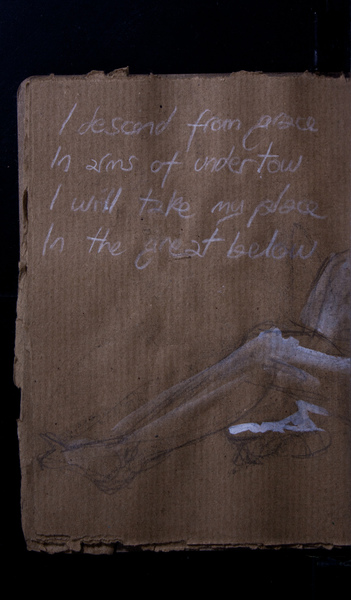 I descend from grace
In arms of undertow
I will take my place
In the great below